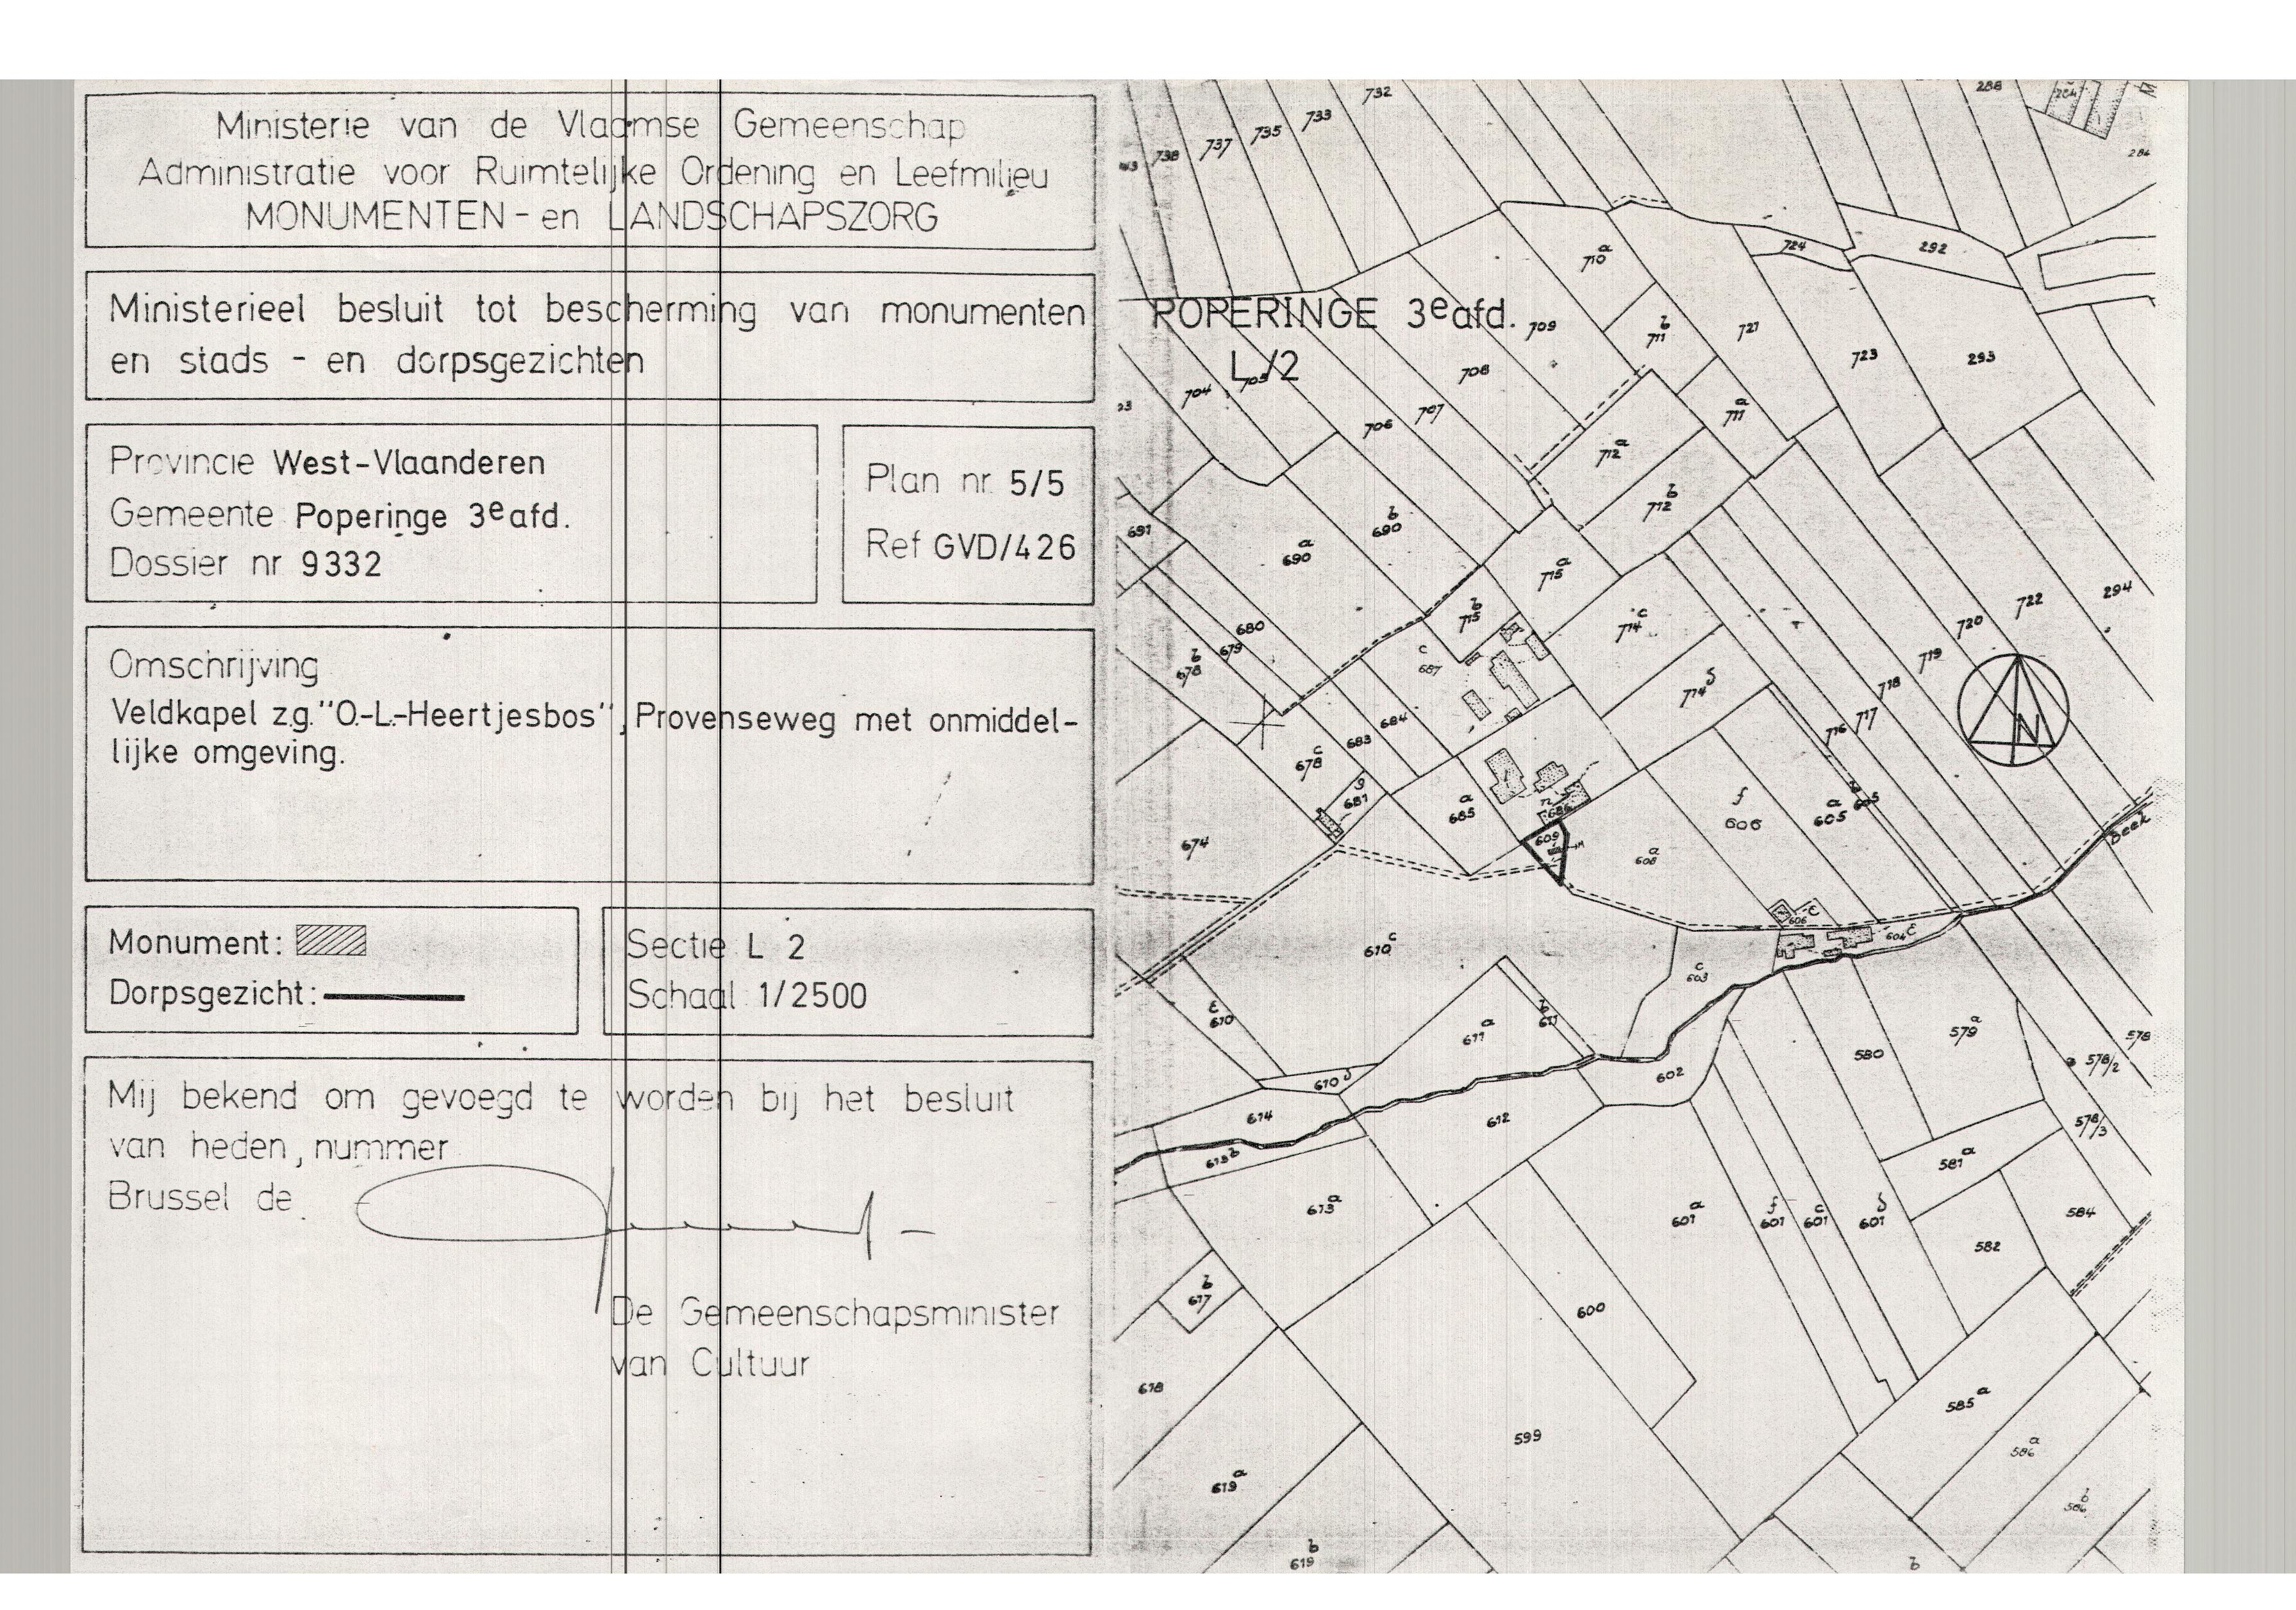 Ministerie van de Vlaamse Gemeenschap
Administratie voor Ruimtelijke Ordening en Leefmilieu
MONUMENTEN - en LANDSCHAPSZORG
Ministerieel besluit tot bescherming van monumenten
en stads - en dorpsgezichten
Provincie West-Vlaanderen
Gemeente Poperinge 3e afd.
Dossier nr 9332
Plan nr 5/5
Ref GVD/426
Omschrijving
Veldkapel z.g. "O.-L.-Heertjesbos", Provenseweg met onmiddel-
lijke omgeving.
Monument:
Dorpsgezicht:
Sectie L 2
Schaal 1/2500
Mij bekend om gevoegd te worden bij het besluit
van heden, nummer
Brussel de
De Gemeenschapsminister
van Cultuur
POPERINGE 3e afd.
L/2
732
733
735
737
738
286
284
284
710 a
724
292
709
711 b
721
723
293
708
704
705
706
707
711 a
712 a
712 b
691
690 a
690 b
715 a
715 b
714 c
680
679
678 b
c 687
294
722
720
719
718
717
716
N
684
683
678 c
681 g
685 a
674
609
M
608 a
f 606
a 605
b 605
beek
606 c
610 c
c 603
610 E
611 a
b 611
579 a
580
578
578/2
602
614
612
578/3
581 a
613 b
613 a
601 a
f 601
c 601
601
584
582
b 617
600
618
585 a
599
586 a
b 586
619 a
b 619
b